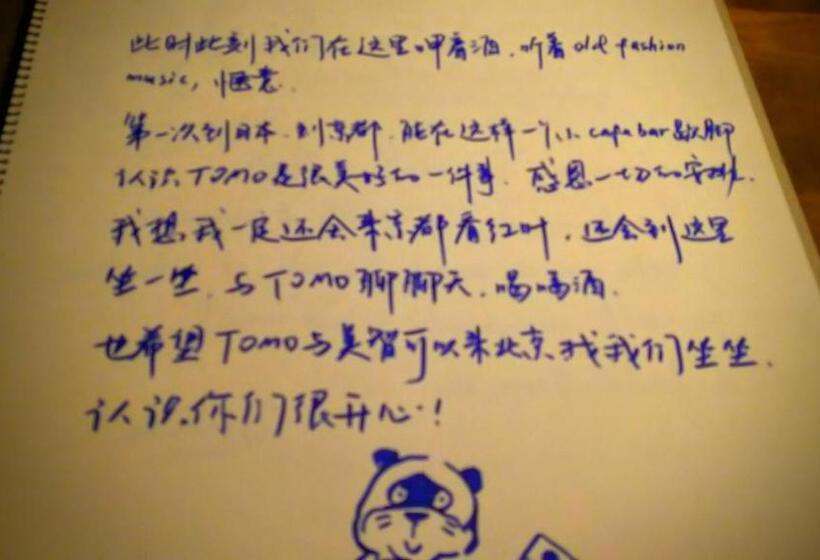 此时此刻我们在这里呷着酒,听着old fashion
music,惬意.
第一次到日本.到京都.能在这样一个小capabar歇脚
认识TOMO是很美好的一件事.感恩一切的安排.
我想,我一定还会来京都看红叶.还会到这里
坐一坐.与TOMO聊聊天.喝喝酒.
也希望TOMO与美智可以来北京找我们坐坐.
认识你们很开心!